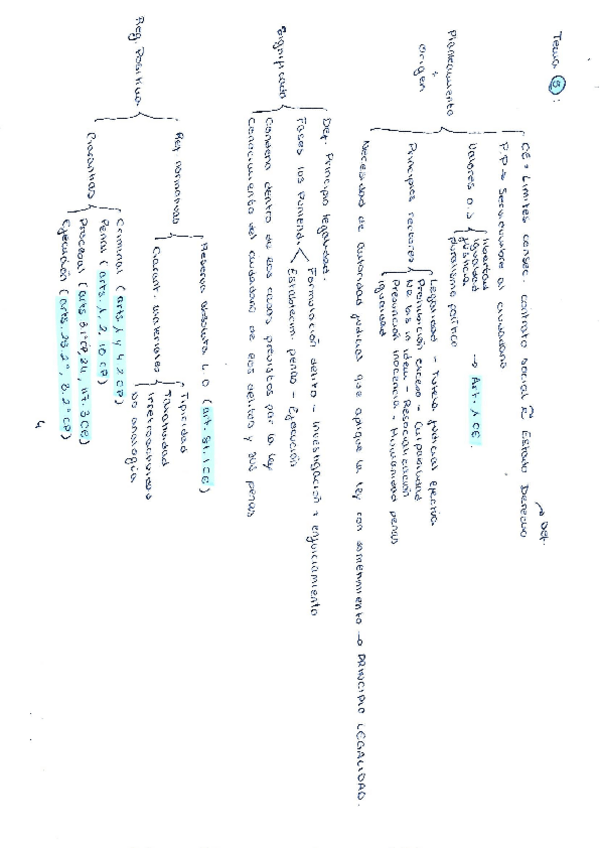 Tema 5:
CE = Límites consec. contrato social Estado Derecho → Def.
P.P → Servidumbre al ciudadano
Planteamiento + origen
Valores O.J
libertad
igualdad
justicia
pluralismo político
→ Art. 1 CE.
Principios rectores
Legalidad - Tutela judicial efectiva
Prohibición exceso - Culpabilidad
Ne bis in idem - Resocialización
Presunción inocencia - Humanidad penas
Igualdad
Necesidad de autoridad judicial que aplique la ley con sometimiento → PRINCIPIO LEGALIDAD.
Significado
Def. Principio legalidad.
Fases Ius Poniendi
Formulación delito - Investigación + enjuiciamiento
Establecim. penas - Ejecución
Condena dentro de los casos previstos por la ley
Conocimiento del ciudadano de los delitos y sus penas
Reg. Positiva
Req. Formativas
Reserva absoluta L.O (art. 81.1 CE)
Garant. materiales
Tipicidad
Taxatividad
Irretroactividad
No analogía
Garantías
Criminal (arts. 1 y 4.2 CP)
Penal (arts. 1, 2, 10 CP)
Procesal (arts 3.1 CP, 24, 117.3 CE)
Ejecución (arts. 25.2º, 3.2º CP)
4